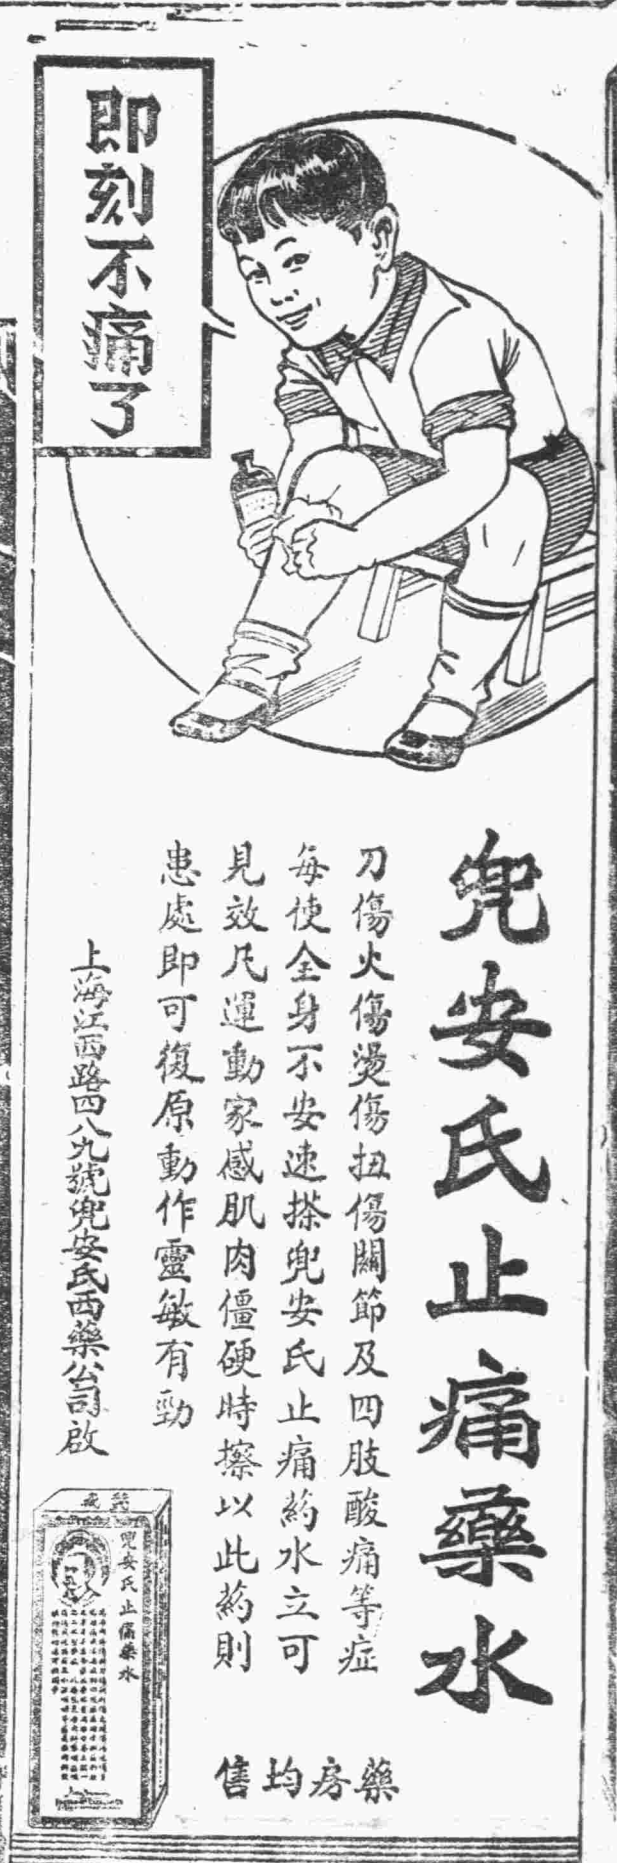 即刻不痛了
兜安氏止痛藥水
刀傷火傷燙傷扭傷關節及四肢酸痛等症
每使全身不安速搽兜安氏止痛葯水立可
見效凡運動家感肌肉僵硬時擦以此葯則
患處即可復原動作靈敏有勁
上海江西路四八九號兜安氏西藥公司啟
兜安氏止痛藥水
藥房均售